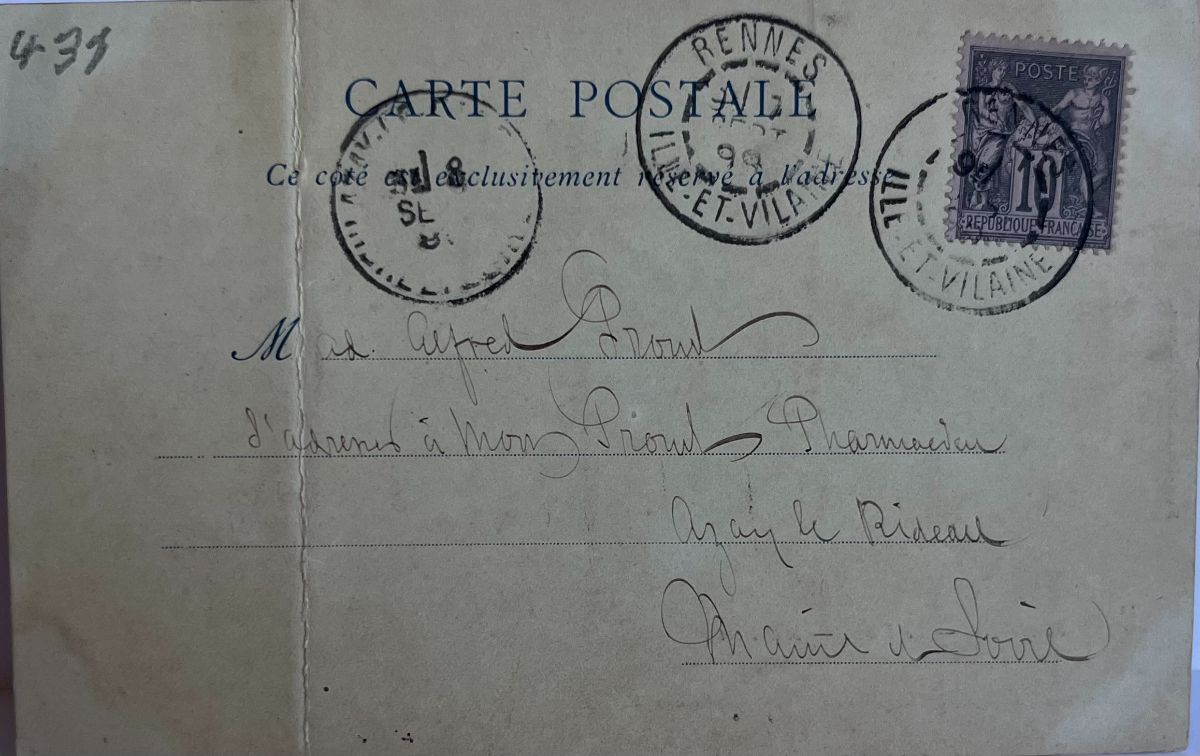 431
CARTE POSTALE
Ce côté est exclusivement réservé à l'adresse
RENNES
7
SEPT
99
ILLE-ET-VILAINE
8
SE
POSTE
10
REPUBLIQUE FRANCAISE
ILLE-ET-VILAINE
Mad. Alfred Proust
d'adresse à Mons Proust Pharmacien
Azay le Rideau
Maine et Loire